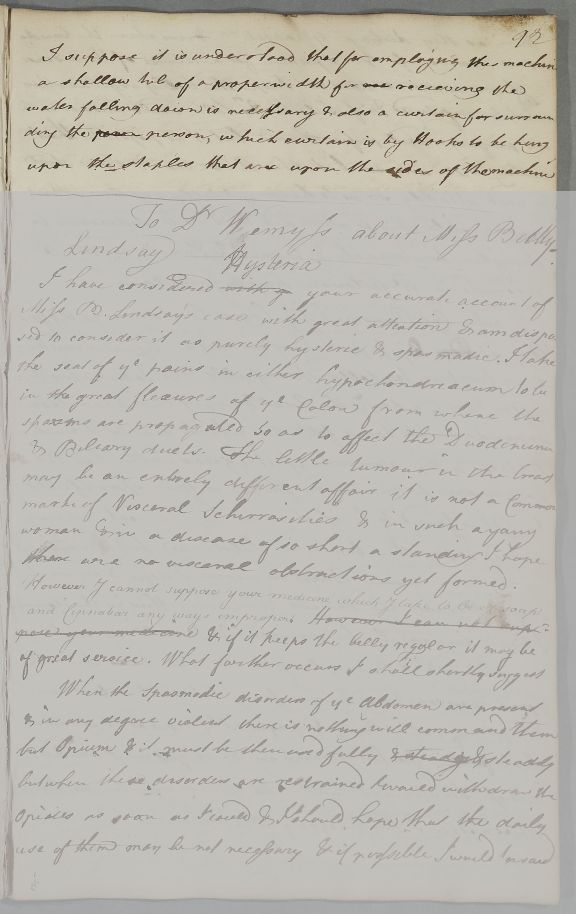 92
I suppose it is understood that for employing this machin
a shallow tub of a proper width for recieving the
water falling down is necessary & also a curtain for surroun
ding the person, which curtain is by Hooks to be hung
upon the staples that are upon the sides of the machine
To Dr Wemyss about Miss Betty
Lindsay Hysteria
I have considered your accurate account of
Miss B. Lindsay's case with great attention & am dispo
sed to consider it as purely hysteric & spasmodic. I take
the seat of ye pains in either hypochondreacum to be
in the great flexures of ye Colon from whence the
spasms are propagated so as to affect the Duodenum
& Biliary ducts. The little tumour in the breast
may be an entirely different affair it is not a Common
mark of Visceral Schirrosities & in such a young
woman & in a disease of so short a standing I hope
there are no visceral obstructions yet formed.
However I cannot suppose your medicine which I take to be of soap
and Cinnabar any ways improper. However I can not sup
pose your medicine & if it keeps the belly regular it may be
of great service. What farther occurs I shall shortly suggest
When the spasmodic disorders of ye Abdomen are present
& in any degree violent there is nothing will command them
but Opium & it must be then used fully & steadily & steadily
but when these disorders are restrained I would withdraw the
Opiates as soon as I could & I should hope that the daily
use of them may be not necessary & if possible I would